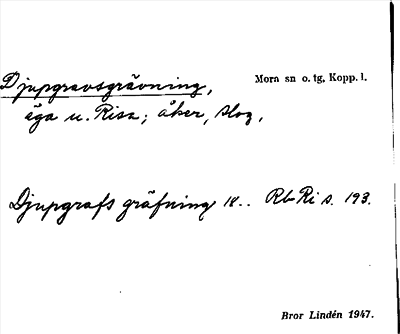 Djupgravsgrävning, Mora sn o. tg, Kopp. l.
äga u. Risa; åker, slog,
Djupgrafs gräfning 18.. Rb Ri s. 193.
Bror Lindén 1947.